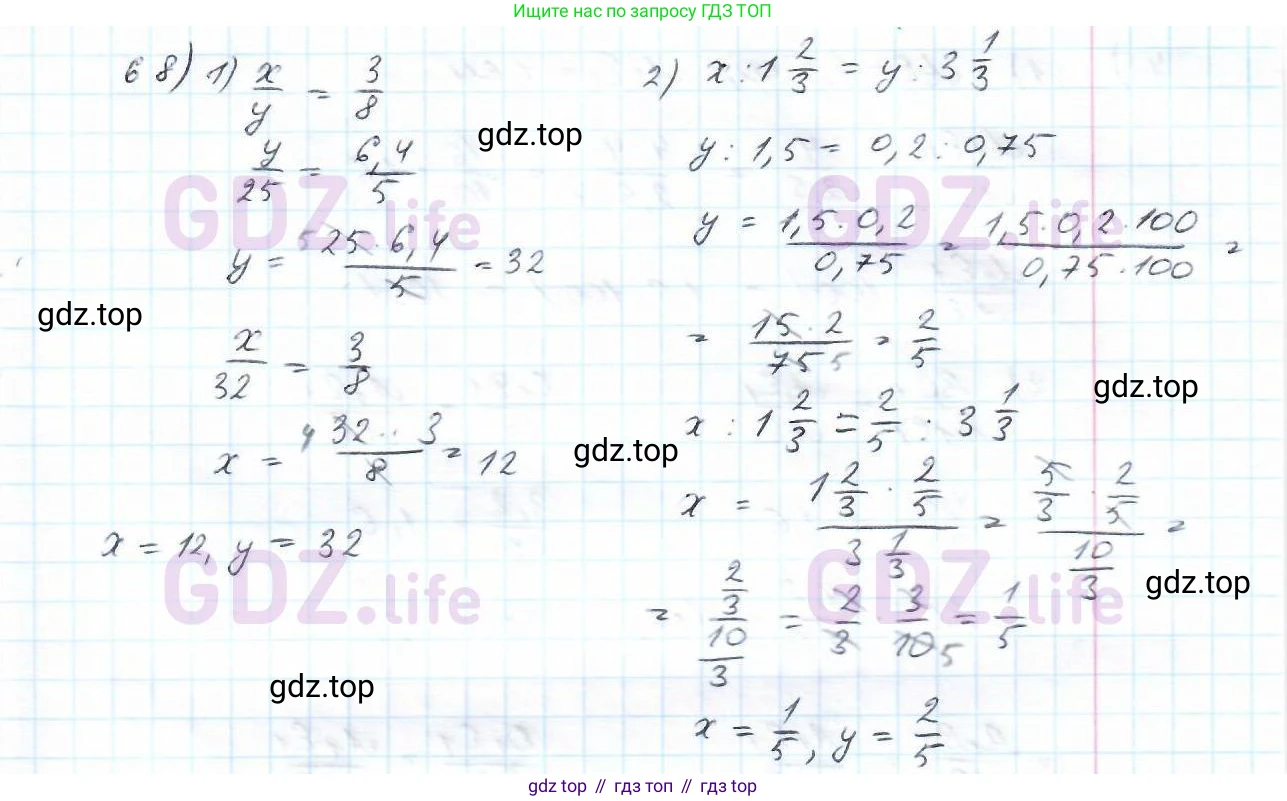 Ищите нас по запросу ГДЗ ТОП
68) 1) x/y = 3/8
y/25 = 6,4/5
y = 5 25 · 6,4/5 = 32
x/32 = 3/8
x = 4 32 · 3/8 = 12
x = 12, y = 32
2) x : 1 2/3 = y : 3 1/3
y : 1,5 = 0,2 : 0,75
y = 1,5 · 0,2/0,75 = 1,5 · 0,2 · 100/0,75 · 100 =
= 15 · 2/75 5 = 2/5
x : 1 2/3 = 2/5 : 3 1/3
x = 1 2/3 · 2/5 / 3 1/3 = 5/3 · 2/5 / 10/3 =
= 2/3 / 10/3 = 2/3 3/10 5 = 1/5
x = 1/5, y = 2/5
gdz.top
gdz.top
gdz.top
gdz.top
gdz.top
gdz.top
GDZ.life
GDZ.life
GDZ.life
GDZ.life
gdz top // гдз топ // gdz top